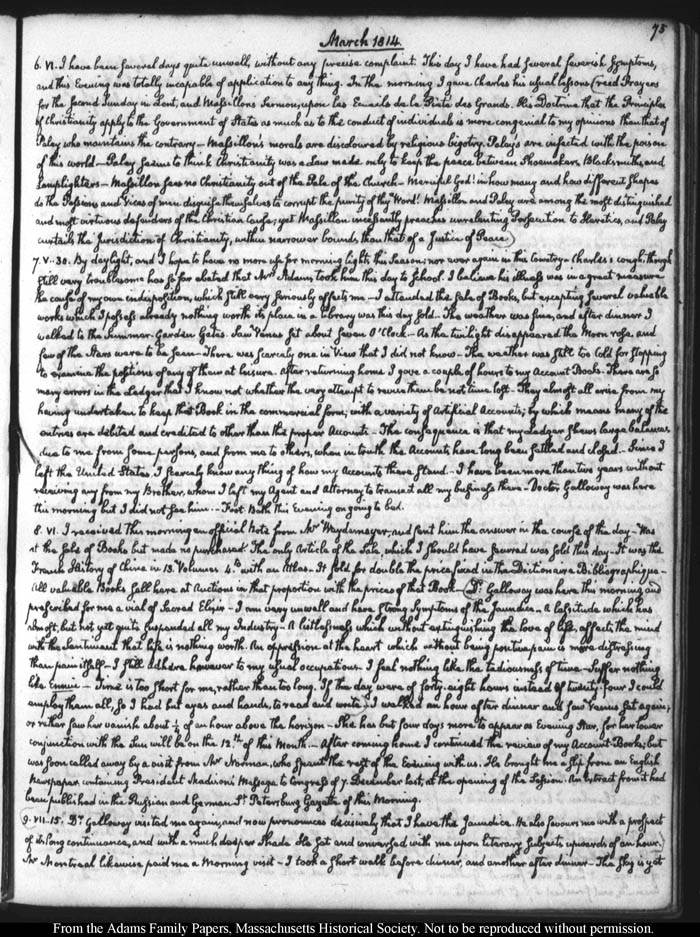 75
March 1814.
6. VI. I have been several days quite unwell, without any precise complaint. This day I have had several feverish symptoms,
and this Evening was totally incapable of application to any thing. In the morning I gave Charles his usual lessons (read Prayers
for the second Sunday in Lent, and Massillons Sermon, upon les Ecueils de la Pieté des Grands. His Doctrine that the Principles
of Christianity apply to the Government of States as much as to the conduct of individuals is more congenial to my opinions than that of
Paley who maintains the contrary — Massillon's morals are discoloured by religious bigotry. Paleys are infected with the poison
of this world — Paley seems to think Christianity was a Law made only to keep the peace between Shoemakers, Blacksmiths, and
Lamplighters — Massillon sees no Christianity out of the Pale of the Church — Merciful God! in how many and how different shapes
do the Passions and Vices of men disguise themselves to corrupt the purity of thy Word! Massillon and Paley are among the most distinguished
and most virtuous defenders of the Christian Cause; yet Massillon incessantly preaches unrelenting Persecution to Heretics, and Paley
curtails the jurisdiction of Christianity, within narrower bounds than that of a Justice of Peace)
7. V. 30. By daylight, and I hope to have no more use for morning lights this Season; nor ever again in this Country — Charles's cough, though
still very troublesome has so far abated that Mrs. Adams took him this day to School. I believe his illness was in a great measure
the cause of my own indisposition, which still very seriously affects me — I attended the sale of Books, but excepting several valuable
works which I possess already nothing worth its place in a Library was this day sold. The weather was fine, and after dinner I
walked to the Summer-Garden Gates. Saw Venus set about seven O'Clock — As the twilight disappeared the Moon rose, and
few of the Stars were to be seen — There was scarcely one in view that I did not know — The weather was still too cold for stopping
to examine the positions of any of them at leisure. After returning home I gave a couple of hours to my Account Books. There are so
many errors in the Ledger that I know not whether the very attempt to revise them be not time lost — They almost all arise from my
having undertaken to keep that Book in the commercial form; with a variety of Artificial Accounts; by which means many of the
entries are debited and credited to other than the proper Accounts — The consequence is that my Ledger shews large balances
due to me from some persons, and from me to others, when in truth the Accounts have long been settled and closed — Since I
left the United States I scarcely know any thing of how my Accounts there stand — I have been more than two years without
receiving any from my Brother, whom I left my Agent and Attorney to transact all my business there — Doctor Galloway was here
this morning but I did not see him — Foot Bath this Evening on going to bed.
8. VI. I received this morning an official Note from Mr Weydemeyer, and sent him the answer in the course of the day — Was
at the sale of Books but made no purchases. The only Article of the Sale, which I should have secured was sold this day — It was the
French History of China in 13. Volumes 4to. with an Atlas. It sold for double the price fixed in the Dictionaire Bibliographique —
All valuable Books sell here at Auctions in that proportion with the prices of that Book — (Dr. Galloway was here this morning and
prescribed for me a vial of Sacred Elixir — I am very unwell and have strong symptoms of the Jaundice — A lassitude which has
almost, but not yet quite suspended all my Industry — A listlessness which without extinguishing the love of life, affects the mind
with the Sentiment that life is nothing worth. An oppression at the heart which without being positive pain is more distressing
than pain itself — I still adhere however to my usual occupations. I feel nothing like the tediousness of time — Suffer nothing
like Ennui — Time is too short for me, rather than too long. If the day were of forty-eight hours instead of twenty-four I could
employ them all, so I had but eyes and hands, to read and write.) I walked an hour after dinner and saw Venus set again;
or rather saw her vanish about ¼ of an hour above the horizon — She has but four days more to appear as Evening Star, for her lower
conjunction with the Sun will be on the 12th. of this Month — After coming home I continued the review of my Account Books; but
was soon called away by a visit from Mr Norman, who spent the rest of the Evening with us. He brought me a slip from an English
Newspaper containing President Madison's Message to Congress of 7. December last, at the opening of the Session. An extract from it had
been published in the Russian and German St. Petersburg Gazette of this Morning.
(9. VII. 15. Dr. Galloway visited me again, and now pronounces decisively that I have the Jaundice. He also favours me with a prospect
of its long continuance, and with a much deeper shade. He sat and conversed with me upon literary subjects upwards of an hour.)
Mr Montreal likewise paid me a Morning visit — I took a short walk before dinner, and another after dinner — The sky is yet
From the Adams Family Papers, Massachusetts Historical Society. Not to be reproduced without permission.